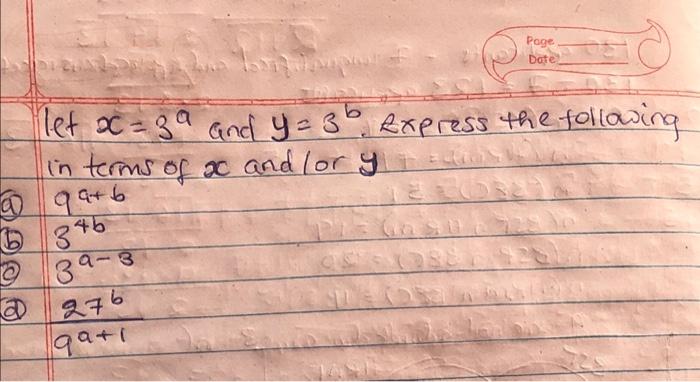 Page
Date
let x = 3^a and y = 3^b. Express the following
in terms of x and/or y
(a) 9^{a+b}
(b) 3^{4b}
(c) 3^{a-3}
(d) 27^b
9^{a+1}